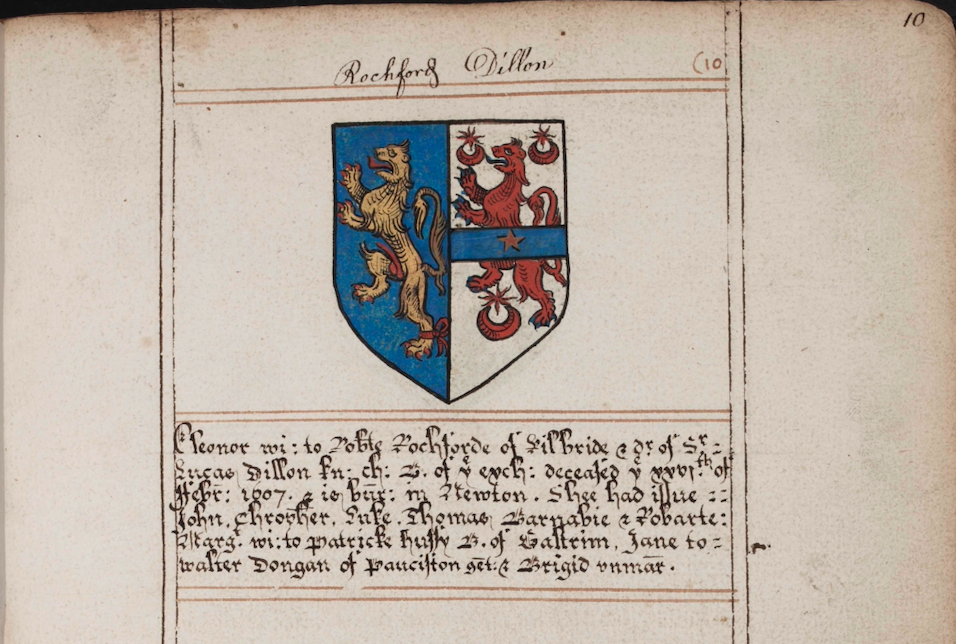 10
Rochford Dillon (10
Eleonor wi: to Robte Rochforde of Kilbride & dr. of Sr. =
Lucas Dillon kn: ch: B. of ye exch: deceased ye xxvi.th of
Febr: 1607. & is bur: in Newton. Shee had issue ::
John, Chropher, Luke, Thomas, Barnabie & Robarte:
Marg. wi: to Patricke Hussy B. of Galtrim, Jane to =
Walter Dongan of gēt: & Brigid vnmar.